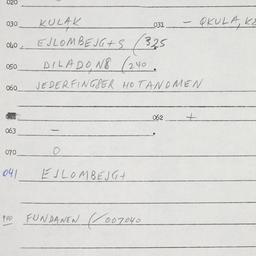 020
030 KULAK 031 - QKULA, K
040 EJLOMBEJG+S (325
050 DILADON8 (240.
060 JEDERFINGSER HOTANDMEN
062 +
063 -
070 0
041 EJLOMBEJG+
FUNDANEN (/007040